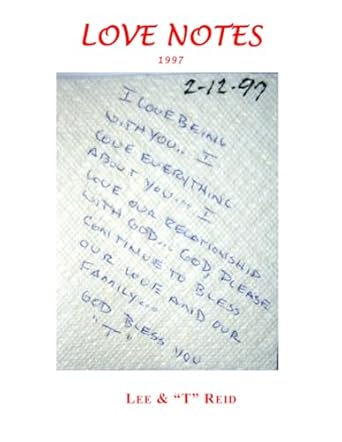 LOVE NOTES
1997
2-12-97
I LOVE BEING
WITH YOU.. I
LOVE EVERYTHING
ABOUT YOU... I
LOVE OUR RELATIONSHIP
WITH GOD... GOD, PLEASE
CONTINUE TO BLESS
OUR LOVE AND OUR
FAMILY...
GOD BLESS YOU
"T"
LEE & “T” REID